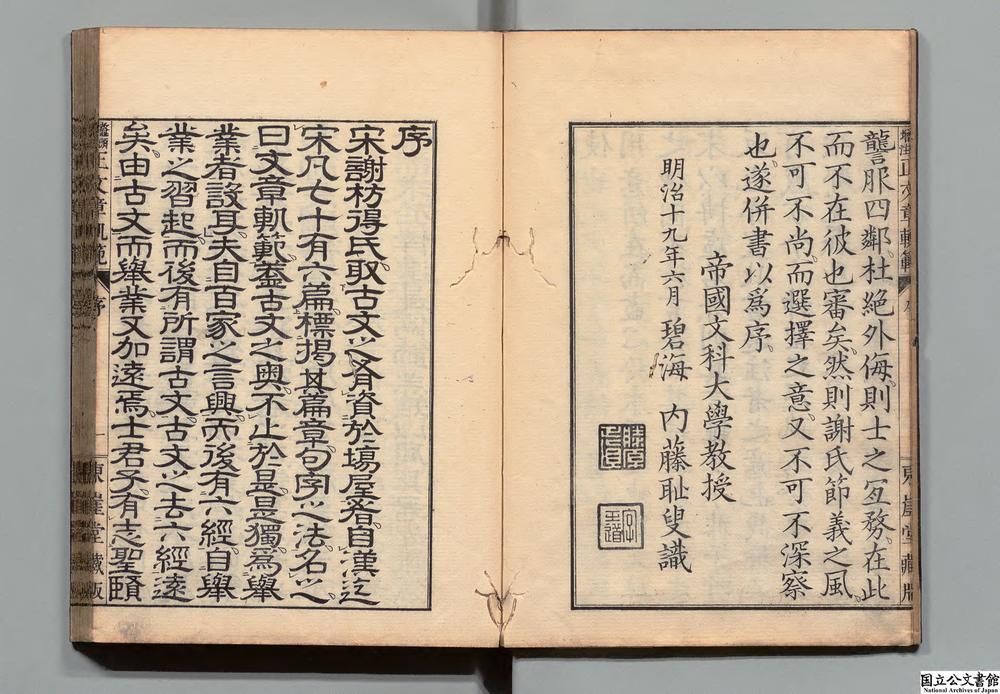 讋服四鄰、杜絕外侮、則士之冝務、在此
而不在彼也審矣、然則謝氏節義之風、
不可不尚、而選擇之意、又不可不深察
也、遂併書以爲序、
帝國文科大學教授
明治十九年六月 碧海 內藤耻叟識
東崖堂藏版
序
宋謝枋得氏、取古文之有資於塲屋者、自漢迄
宋凡七十有六篇、標揭其篇章句字之法、名之
曰文章軌範、蓋古文之奧、不止於是、是獨爲舉
業者設耳、夫自百家之言興、而後有六經、自舉
業之習起、而後有所謂古文、古文之去六經遠
矣、由古文而舉業、又加遠焉、士君子有志聖賢
正文章軌範
序
一
東崖堂藏版
国立公文書館
National Archives of Japan